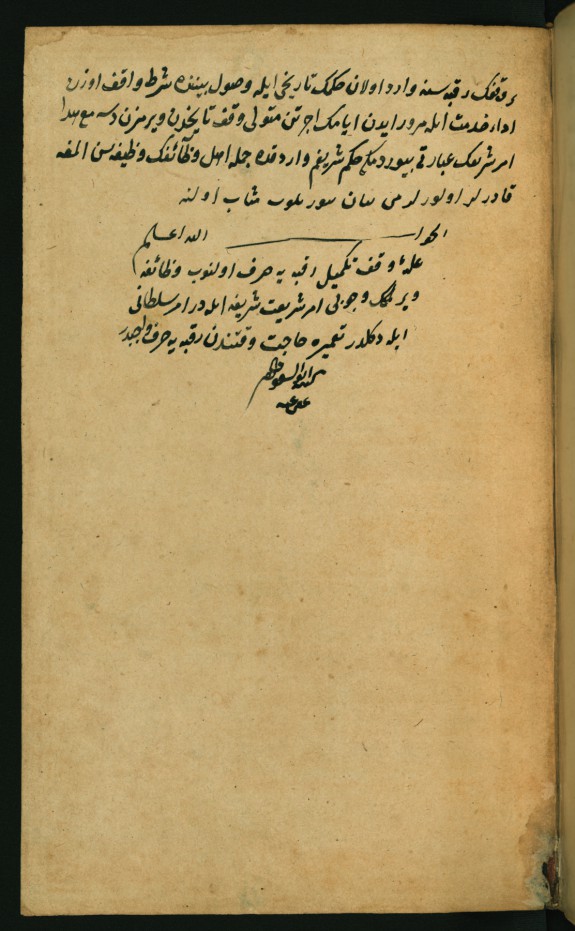 بر وقفك رقبه سنه وارد اولان حكمك تاريخى ايله وصول بيننده شرط واقف اوزره
ادا خدمت ايله مرور ايدن ايامك اجرتن متولى وقف تاريخدن ويرمزن دسه مع هذا
امر شريفك عبارتى بيوردمكه حكم شريفم واردقده جمله اهل وظائفك وظيفه سن
قادر لر اولورلر مى بيان بيوريلوب مثاب اولنه
الجواب الله اعلم
غلهٔ وقف تكميل رقبه يه صرف اولنوب وظائفه
ويرمك وجوبى امر شريعت شريفه ايله در امر سلطانى
ايله دكلدر تعميره حاجت وقتندن رقبه يه صرف واجبدر
كتبه ابو السعود
عفى عنه